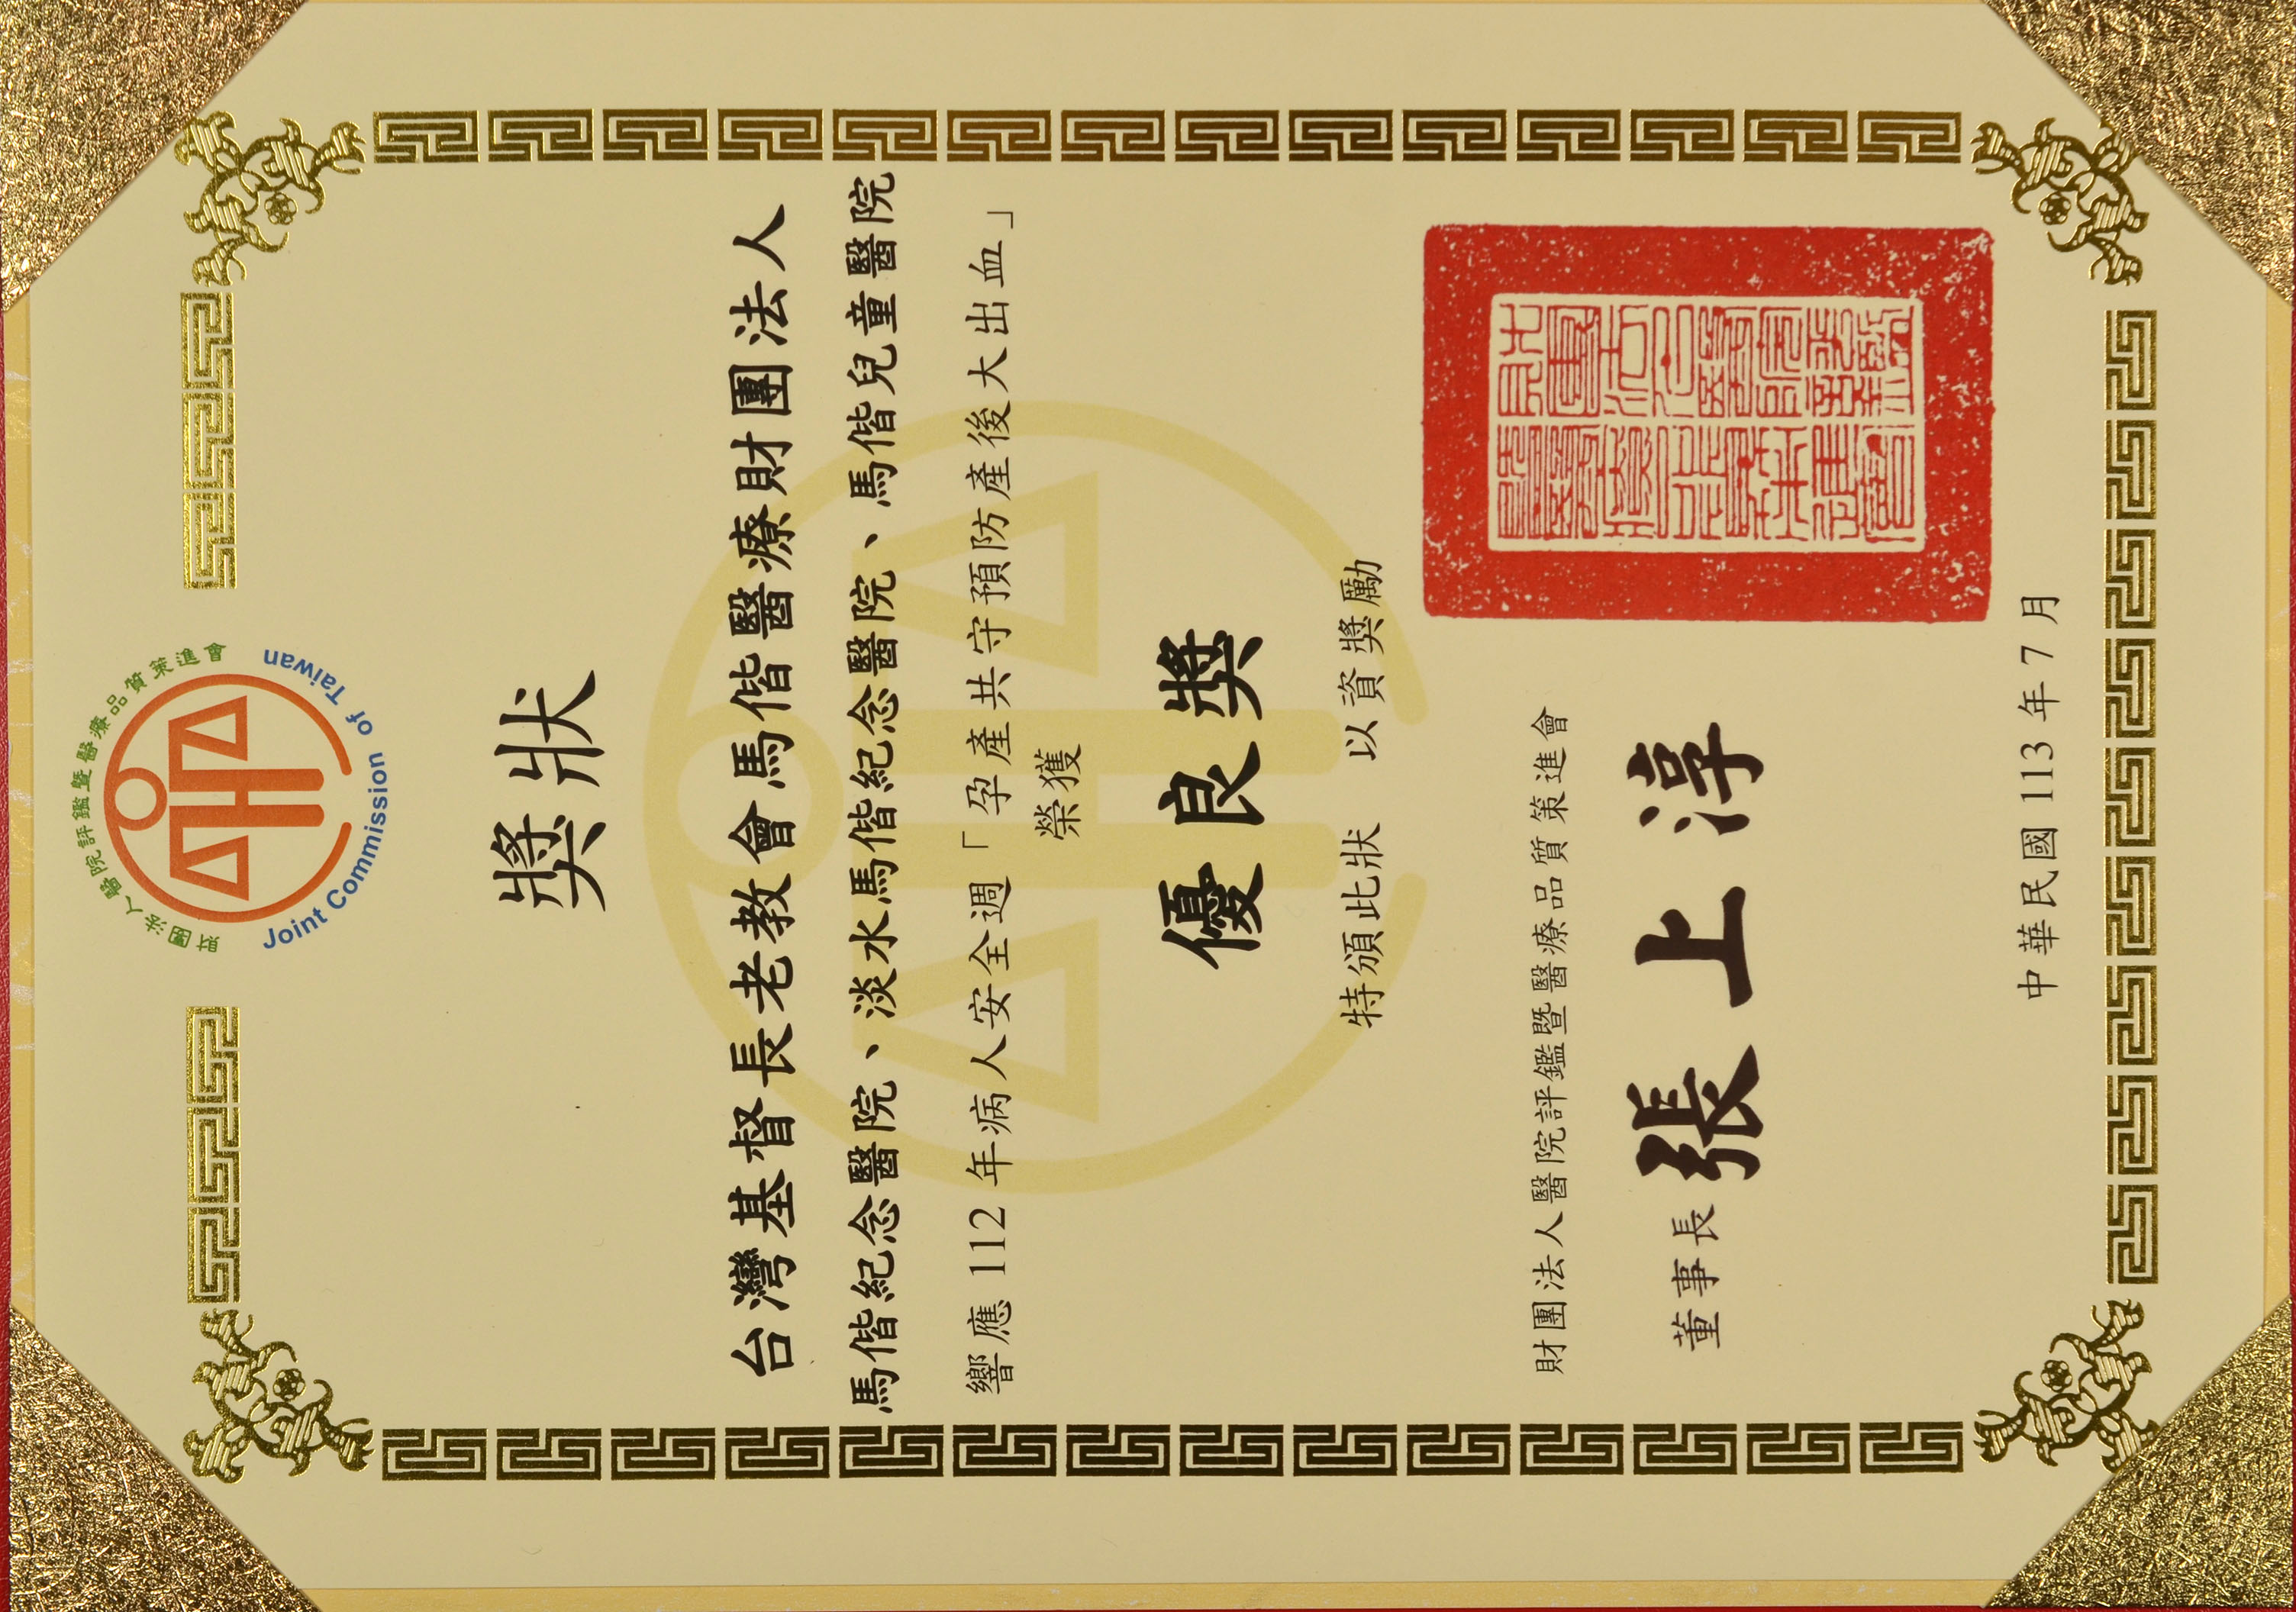 財團法人醫院評鑑暨醫療品質策進會
Joint Commission of Taiwan
獎狀
台灣基督長老教會馬偕醫療財團法人
馬偕紀念醫院、淡水馬偕紀念醫院、馬偕兒童醫院
響應 112 年病人安全週「孕產共守預防產後大出血」
榮獲
優良獎
特頒此狀 以資獎勵
財團法人醫院評鑑暨醫療品質策進會
董事長 張上淳
中華民國 113 年 7 月